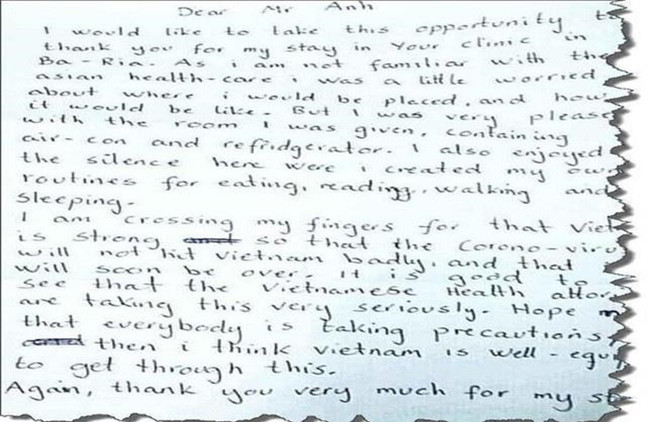 Dear Mr Anh
I would like to take this opportunity to
thank you for my stay in Your clinic in
Ba-Ria. As i am not familiar with the
asian health-care i was a little worried
about where i would be placed, and how
it would be like. But I was very please
with the room I was given, containing
air-con and refridgerator. I also enjoyed
the silence here were i created my own
routines for eating, reading, walking and
sleeping.
I am crossing my fingers for that Viet
is strong so that the Corono-viru
will not hit vietnam badly, and that
will soon be over. It is good to
see that the Vietnamese Health attor
are taking this very seriously. Hope
that everybody is taking precautions,
then i think vietnam is well-equi
to get through this.
Again, thank you very much for my st